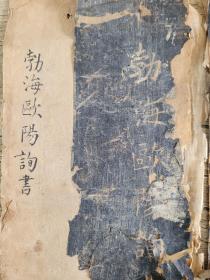 勃海歐陽詢書
勃海歐陽詢